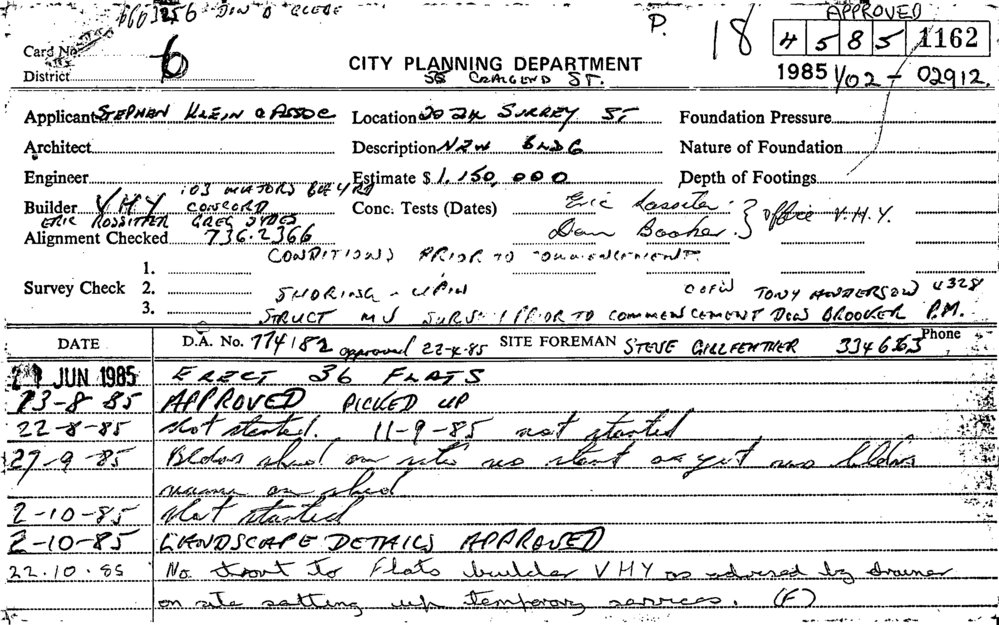 P. 18 APPROVED
Card No. 6 4 5 8 5 1162
District
CITY PLANNING DEPARTMENT
1985 1/02 - 02912.
ST.
Applicant STEPHEN KLEIN & ASSOC Location SURREY ST Foundation Pressure
Architect Description NEW BLDG Nature of Foundation
Engineer Estimate $ 1,150,000 Depth of Footings
103 MAJORS BAY RD
Builder V.H.Y CONCORD Conc. Tests (Dates) Eric } Office V.H.Y.
ERIC ROSSITTER GREG
Alignment Checked 736.2366 Dan Booker
CONDITIONS PRIOR TO COMMENCEMENT
1.
Survey Check 2. SHORING TONY ANDERSON 4328
3. STRUCT PRIOR TO COMMENCEMENT P.M.
DATE D.A. No. 774182 approved 22-4-85 SITE FOREMAN STEVE Phone
JUN 1985 ERECT 36 FLATS
13-8-85 APPROVED PICKED UP
22-8-85 Not started. 11-9-85 not started
27-9-85 Bldrs shed on site no start as yet no bldrs
name on shed
2-10-85 Not started
2-10-85 LANDSCAPE DETAILS APPROVED
22.10.85 No start to Flats builder VHY as advised by drainer
on site setting up temporary services. (F)